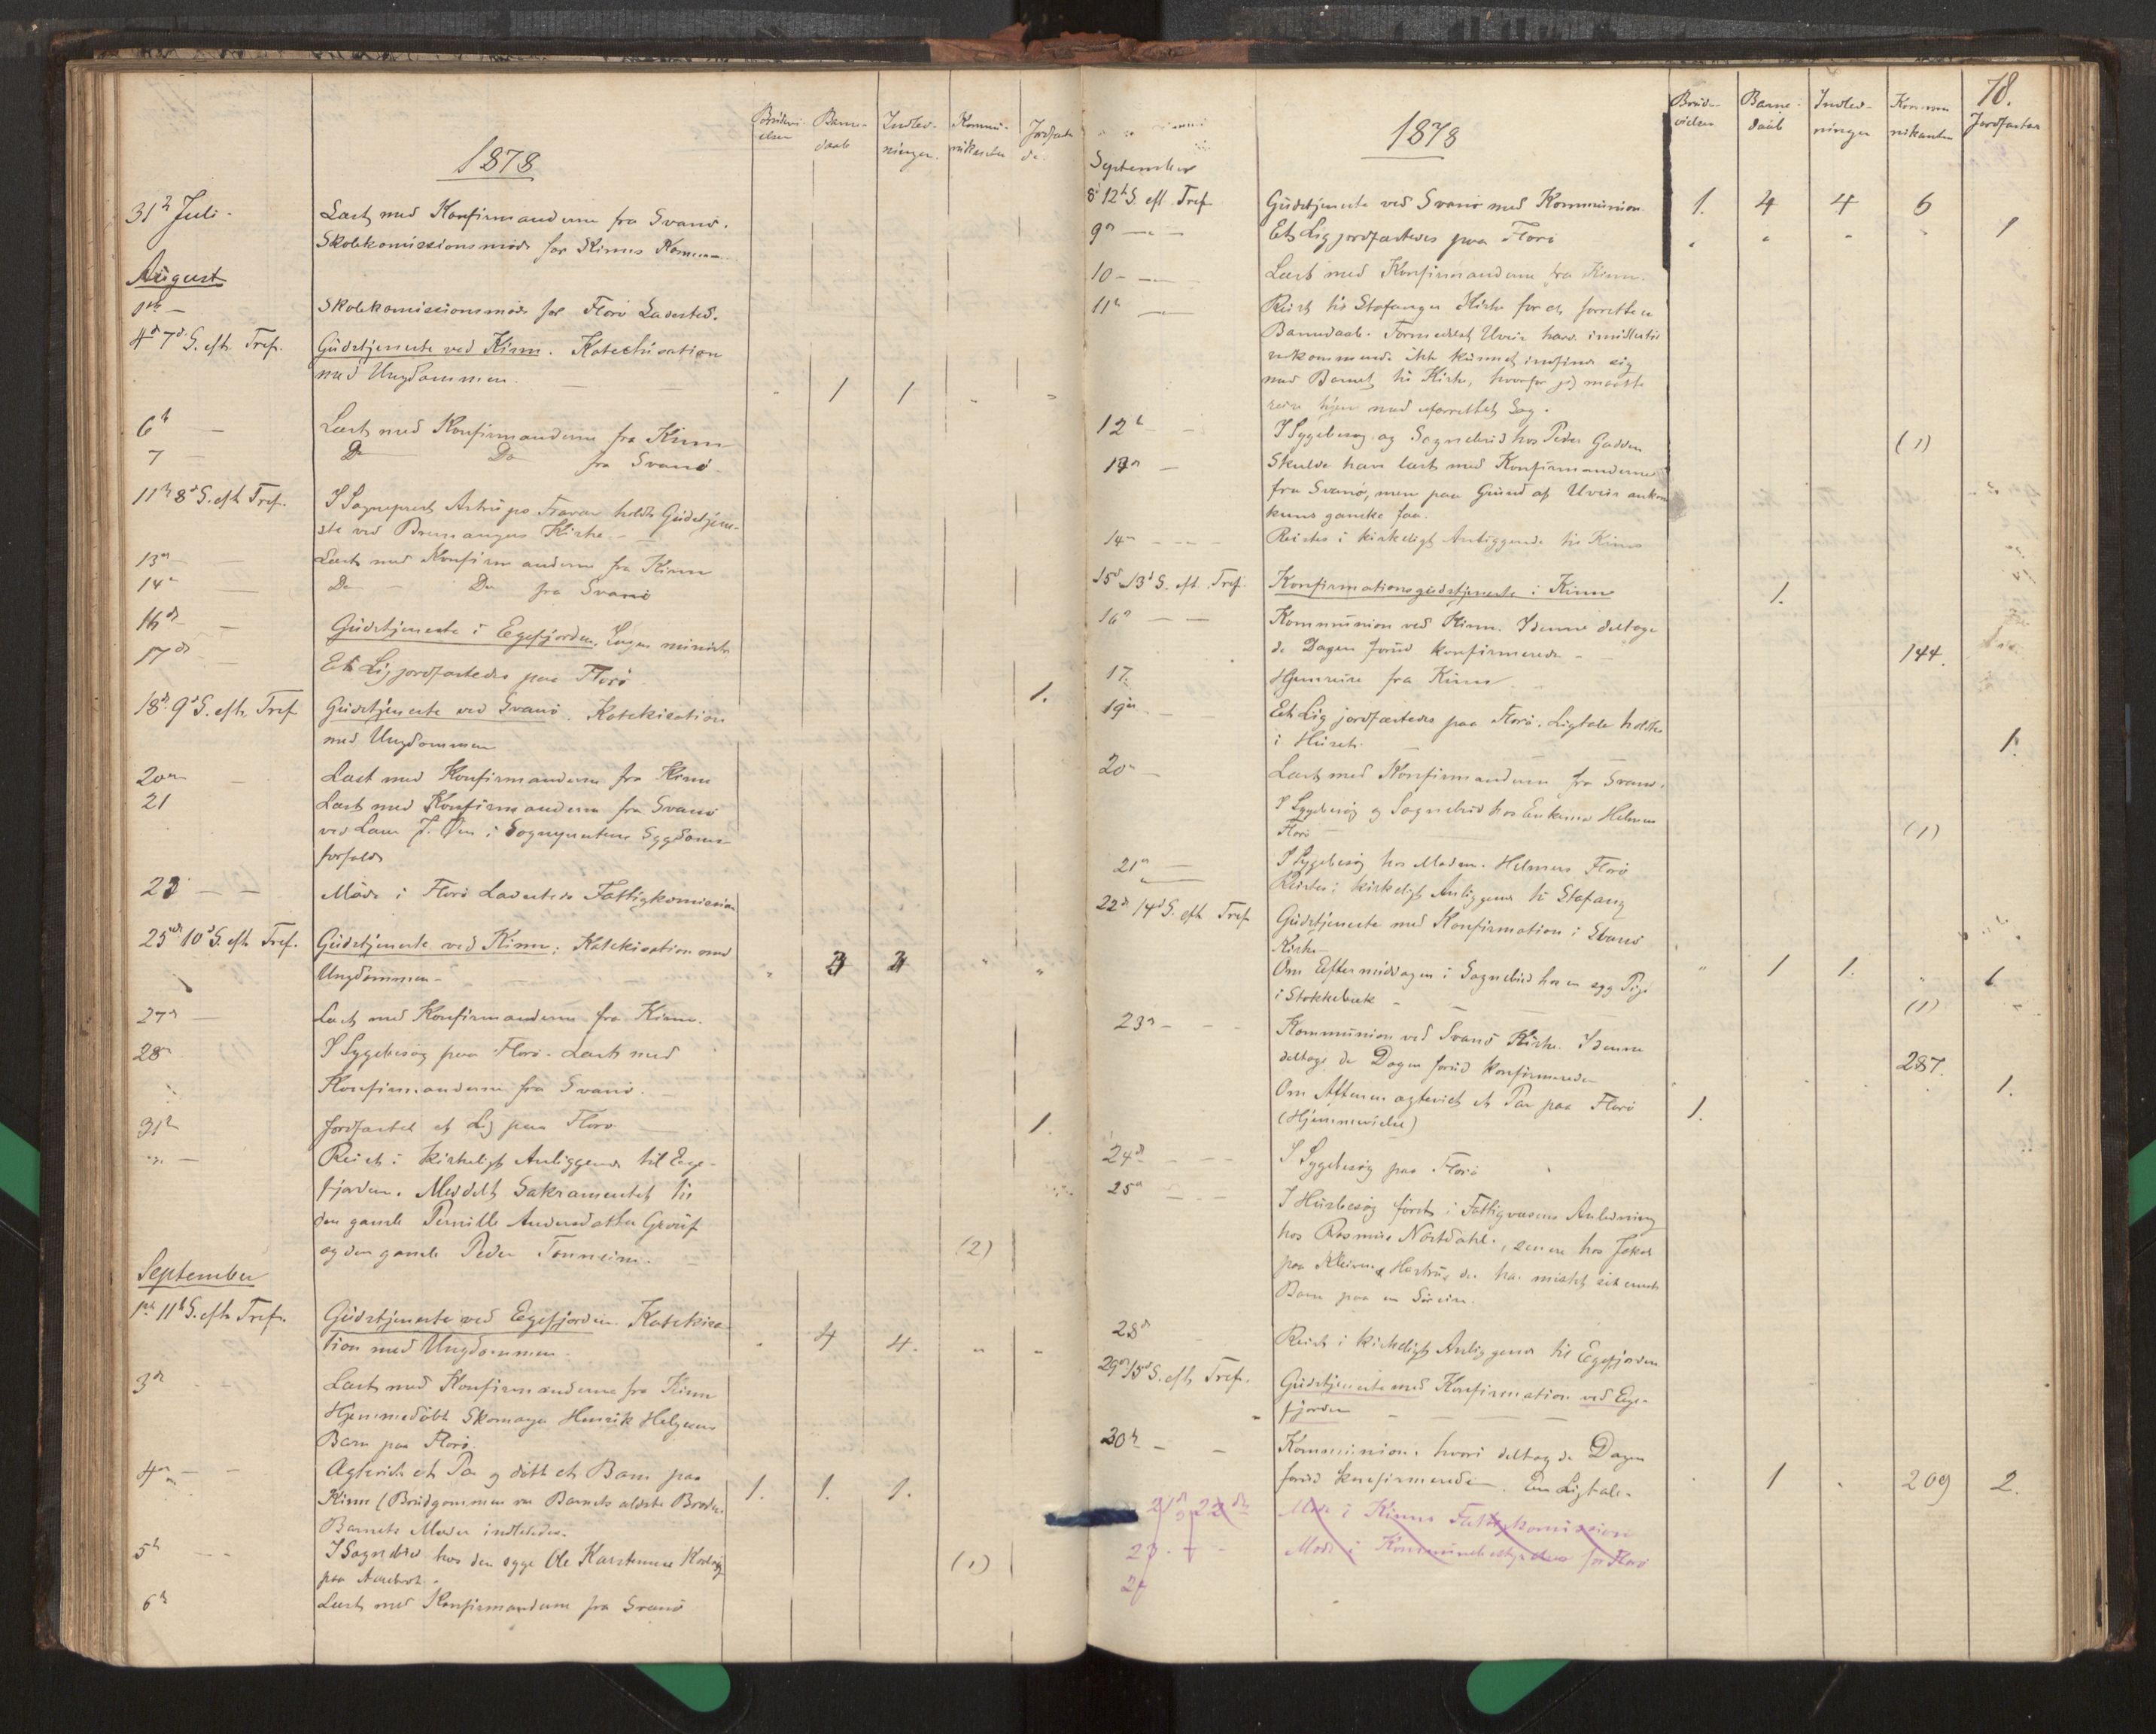 Brudevi-
elser
Barne-
daab
Indled-
ninger.
Kommu-
nikanter
Jordfæste
de.
1878
31te Juli.
Læst med Konfirmanderne fra Svanø.
Skolekomissionsmøde for Kinns Komm
August
1ste —
Skolekomissionsmøde for Florø Ladested.
4de 7de S. eft. Tref.
Gudstjeneste ved Kinn. Katechisation
med Ungdommen. " 1 1 " "
6te —
Læst med Konfirmanderne fra Kinn
7 —
Do Do fra Svanø
11te 8de S. eft. Tref.
I Sogneprest Astrups Fravær holdt Gudstjene-
ste ved Bremangers Kirke.
13de — —
Læst med Konfirmanderne fra Kinn
14de —
Do — Do fra Svanø
16de —
Gudstjeneste i Egefjorden. Ingen ministr
17de —
Et Lig jordfæstedes paa Florø. 1.
18de 9de S. eft. Tref
Gudstjeneste ved Svanø. Katekisation
med Ungdommen
20de —
Læst med Konfirmanderne fra Kinn
21
Læst med Konfirmanderne fra Svanø
ved Lærer J. i Sogneprestens Sygdoms-
forfald
23 — —
Møde i Florø Ladesteds Fattigkomission
25de 10de S. eft. Tref.
Gudstjeneste ved Kinn. Katekisation med
Ungdommen — " 3 3 " "
27de —
Læst med Konfirmanderne fra Kinn.
28de
I Sygebesøg paa Florø. Læst med
Konfirmanderne fra Svanø.
31te
Jordfæstet et Lig paa Florø 1.
" —
Reist i kirkeligt Anliggende til Ege-
fjorden. Meddelt Sakramentet til
den gamle Pernille Andersdatter Grov
og den gamle Peder Tonheim. (2)
September
1ste 11te S. eft. Tref.
Gudstjeneste ved Egefjorden. Katekisa-
tion med Ungdommen. " 4 4. " "
3de
Læst med Konfirmanderne fra Kinn
Hjemmedøbt Skomager Henrik Helgesens
Barn paa Florø.
4de — —
Ægteviet et Par og døbt et Barn paa
Kinn (Brudgommen var Barnets ældste Broder. 1. 1. 1.
Barnets Moder indlededes.
5te — —
I Sognebud hos den syge Ole Karstensens
paa (1)
6te
Læst med Konfirmanderne fra Svanø
78.
Brud-
vielser
Barne-
daab
Indled-
ninger
Kommu
nikanter
Jordfæster
1878
September
8de 12te S. eft. Tref
Gudstjeneste ved Svanø med Kommunion 1. 4 4 6
9de — —
Et Lig jordfæstedes paa Florø " " " " 1
10 — —
Læst med Konfirmanderne fra Kinn.
11te —
Reist til Stafanger Kirke for at forrette
Barnedaab. Formedelst Uveir havde imidlertid
vedkommende ikke kunnet indfinde sig
med Barnet til Kirke, hvorfor jeg maatte
reise hjem med uforrettet Sag.
12te —
I Sygebesøg og Sognebud hos Peder Gadden (1)
13de —
Skulde have læst med Konfirmanderne
fra Svanø, men paa Grund af Uveir ankom
kuns ganske faa.
14de — — —
Reiste i kirkeligt Anliggende til Kinn
15de 13de S. eft. Tref.
Konfirmationsgudstjeneste i Kinn 1.
16de — —
Kommunion ved Kinn. I denne deltoge
de Dagen forud konfirmerede — 144.
17.
Hjemreise fra Kinn
19de —
Et Lig jordfæstedes paa Florø. Ligtale holdtes
i Huset. 1.
20de —
Læst med Konfirmanderne fra Svanø.
I Sygebesøg og Sognebud hos Enkene Helmers
Florø (1)
21de —
I Sygebesøg hos Madam. Helmers Florø
Reiste i kirkeligt Anliggende til Stafang
22de 14de S. eft. Tref
Gudstjeneste med Konfirmation i Svanø
Kirke — " 1 1. " 1
Om Eftermiddagen i Sognebud hos en syg Pige
i Stokkebæk — (1)
23de — —
Kommunion ved Svanø Kirke. I denne
deltoge de Dagen forud konfirmerede 287.
1.
Om Aftenen ægteviet et Par paa Florø 1.
(Hjemmevielse)
24de — — —
I Sygebesøg paa Florø
25de — — —
I Husbesøg først i Fattigvæsens Anledning
hos Rasmus Nordahl, senere hos Jakob
paa der har mistet sit eneste
Barn paa en
28de
Reist i kirkeligt Anliggende til Egefjorden
29de 15de S. eft. Tref.
Gudstjeneste med Konfirmation ved Ege-
fjorden
30te — —
Kommunion, hvori deltog de Dagen
forud konfirmerede. En Ligtale. 1 " 209 2.
21de 22de
Møde i Kinns Fattigkomission
23. — —
Møde i Kommunebestyrelsen for Florø
24